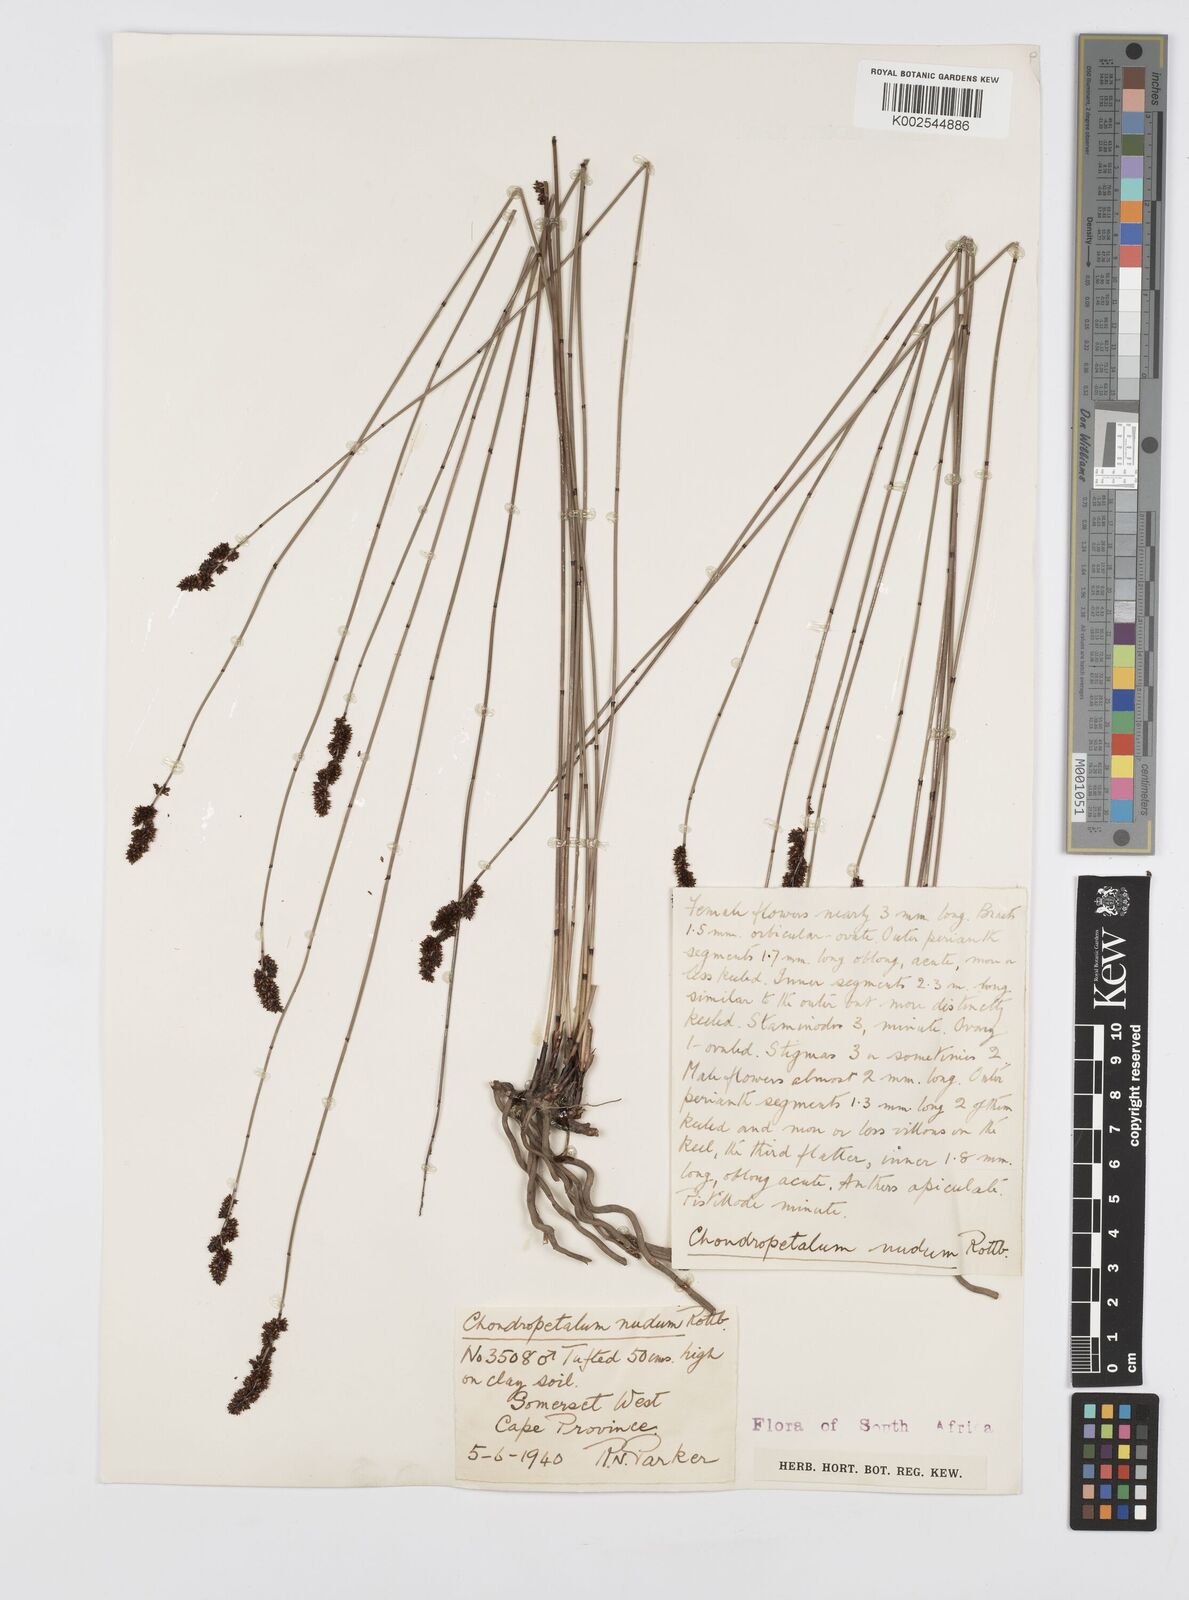 ROYAL BOTANIC GARDENS KEW
K002544886
Female flowers nearly 3 mm long. Bracts
1.5 mm. orbicular-ovate. Outer perianth
segments 1.7 mm. long oblong, acute, more or
less keeled. Inner segments 2.3 m. long
similar to the outer but more distinctly
keeled. Staminodes 3, minute. Ovary
1-ovuled. Stigmas 3 or sometimes 2.
Male flowers almost 2 mm. long. Outer
perianth segments 1.3 mm. long 2 of them
keeled and more or less villous on the
keel, the third flatter, inner 1.8 mm.
long, oblong acute. Anthers apiculate.
Pistillode minute.
Chondropetalum nudum Rottb.
Chondropetalum nudum Rottb.
No 3508 ♂ Tufted 50 cms. high
on clay soil.
Somerset West
Cape Province
5-6-1940 R.N. Parker
Flora of South Africa
HERB. HORT. BOT. REG. KEW.
inches
Density
Don Williams
M001051
centimeters
Royal Botanic Gardens
Kew
0 1 2 3 4 5 6 7 8 9 10
copyright reserved